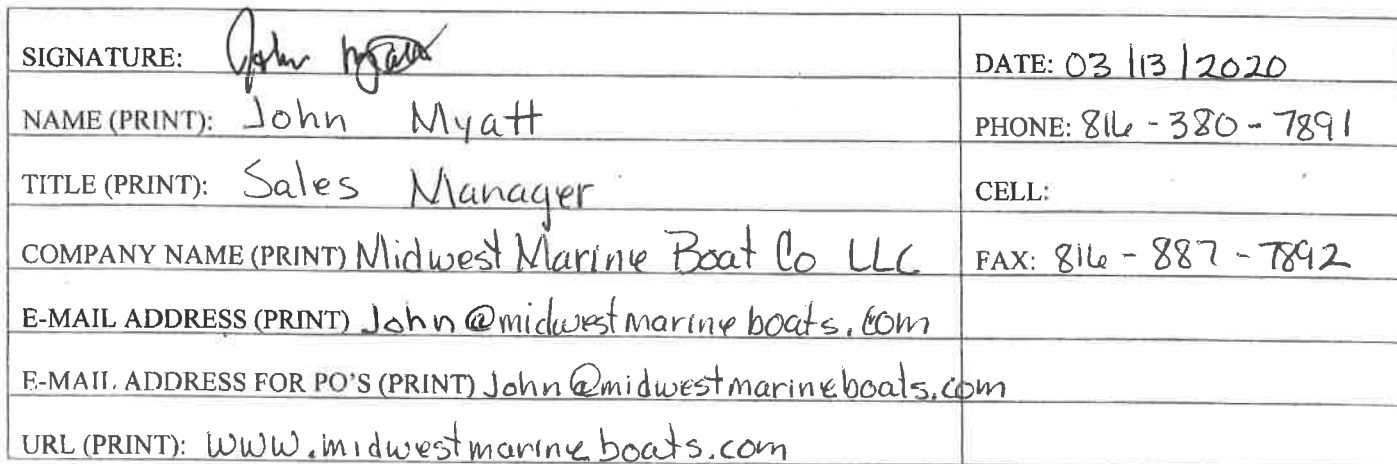 SIGNATURE: John Myatt DATE: 03/13/2020
NAME (PRINT): John Myatt PHONE: 816-380-7891
TITLE (PRINT): Sales Manager CELL:
COMPANY NAME (PRINT) Midwest Marine Boat Co LLC FAX: 816-887-7892
E-MAIL ADDRESS (PRINT) John@midwestmarineboats.com
E-MAIL ADDRESS FOR PO'S (PRINT) John@midwestmarineboats.com
URL (PRINT): www.midwestmarineboats.com